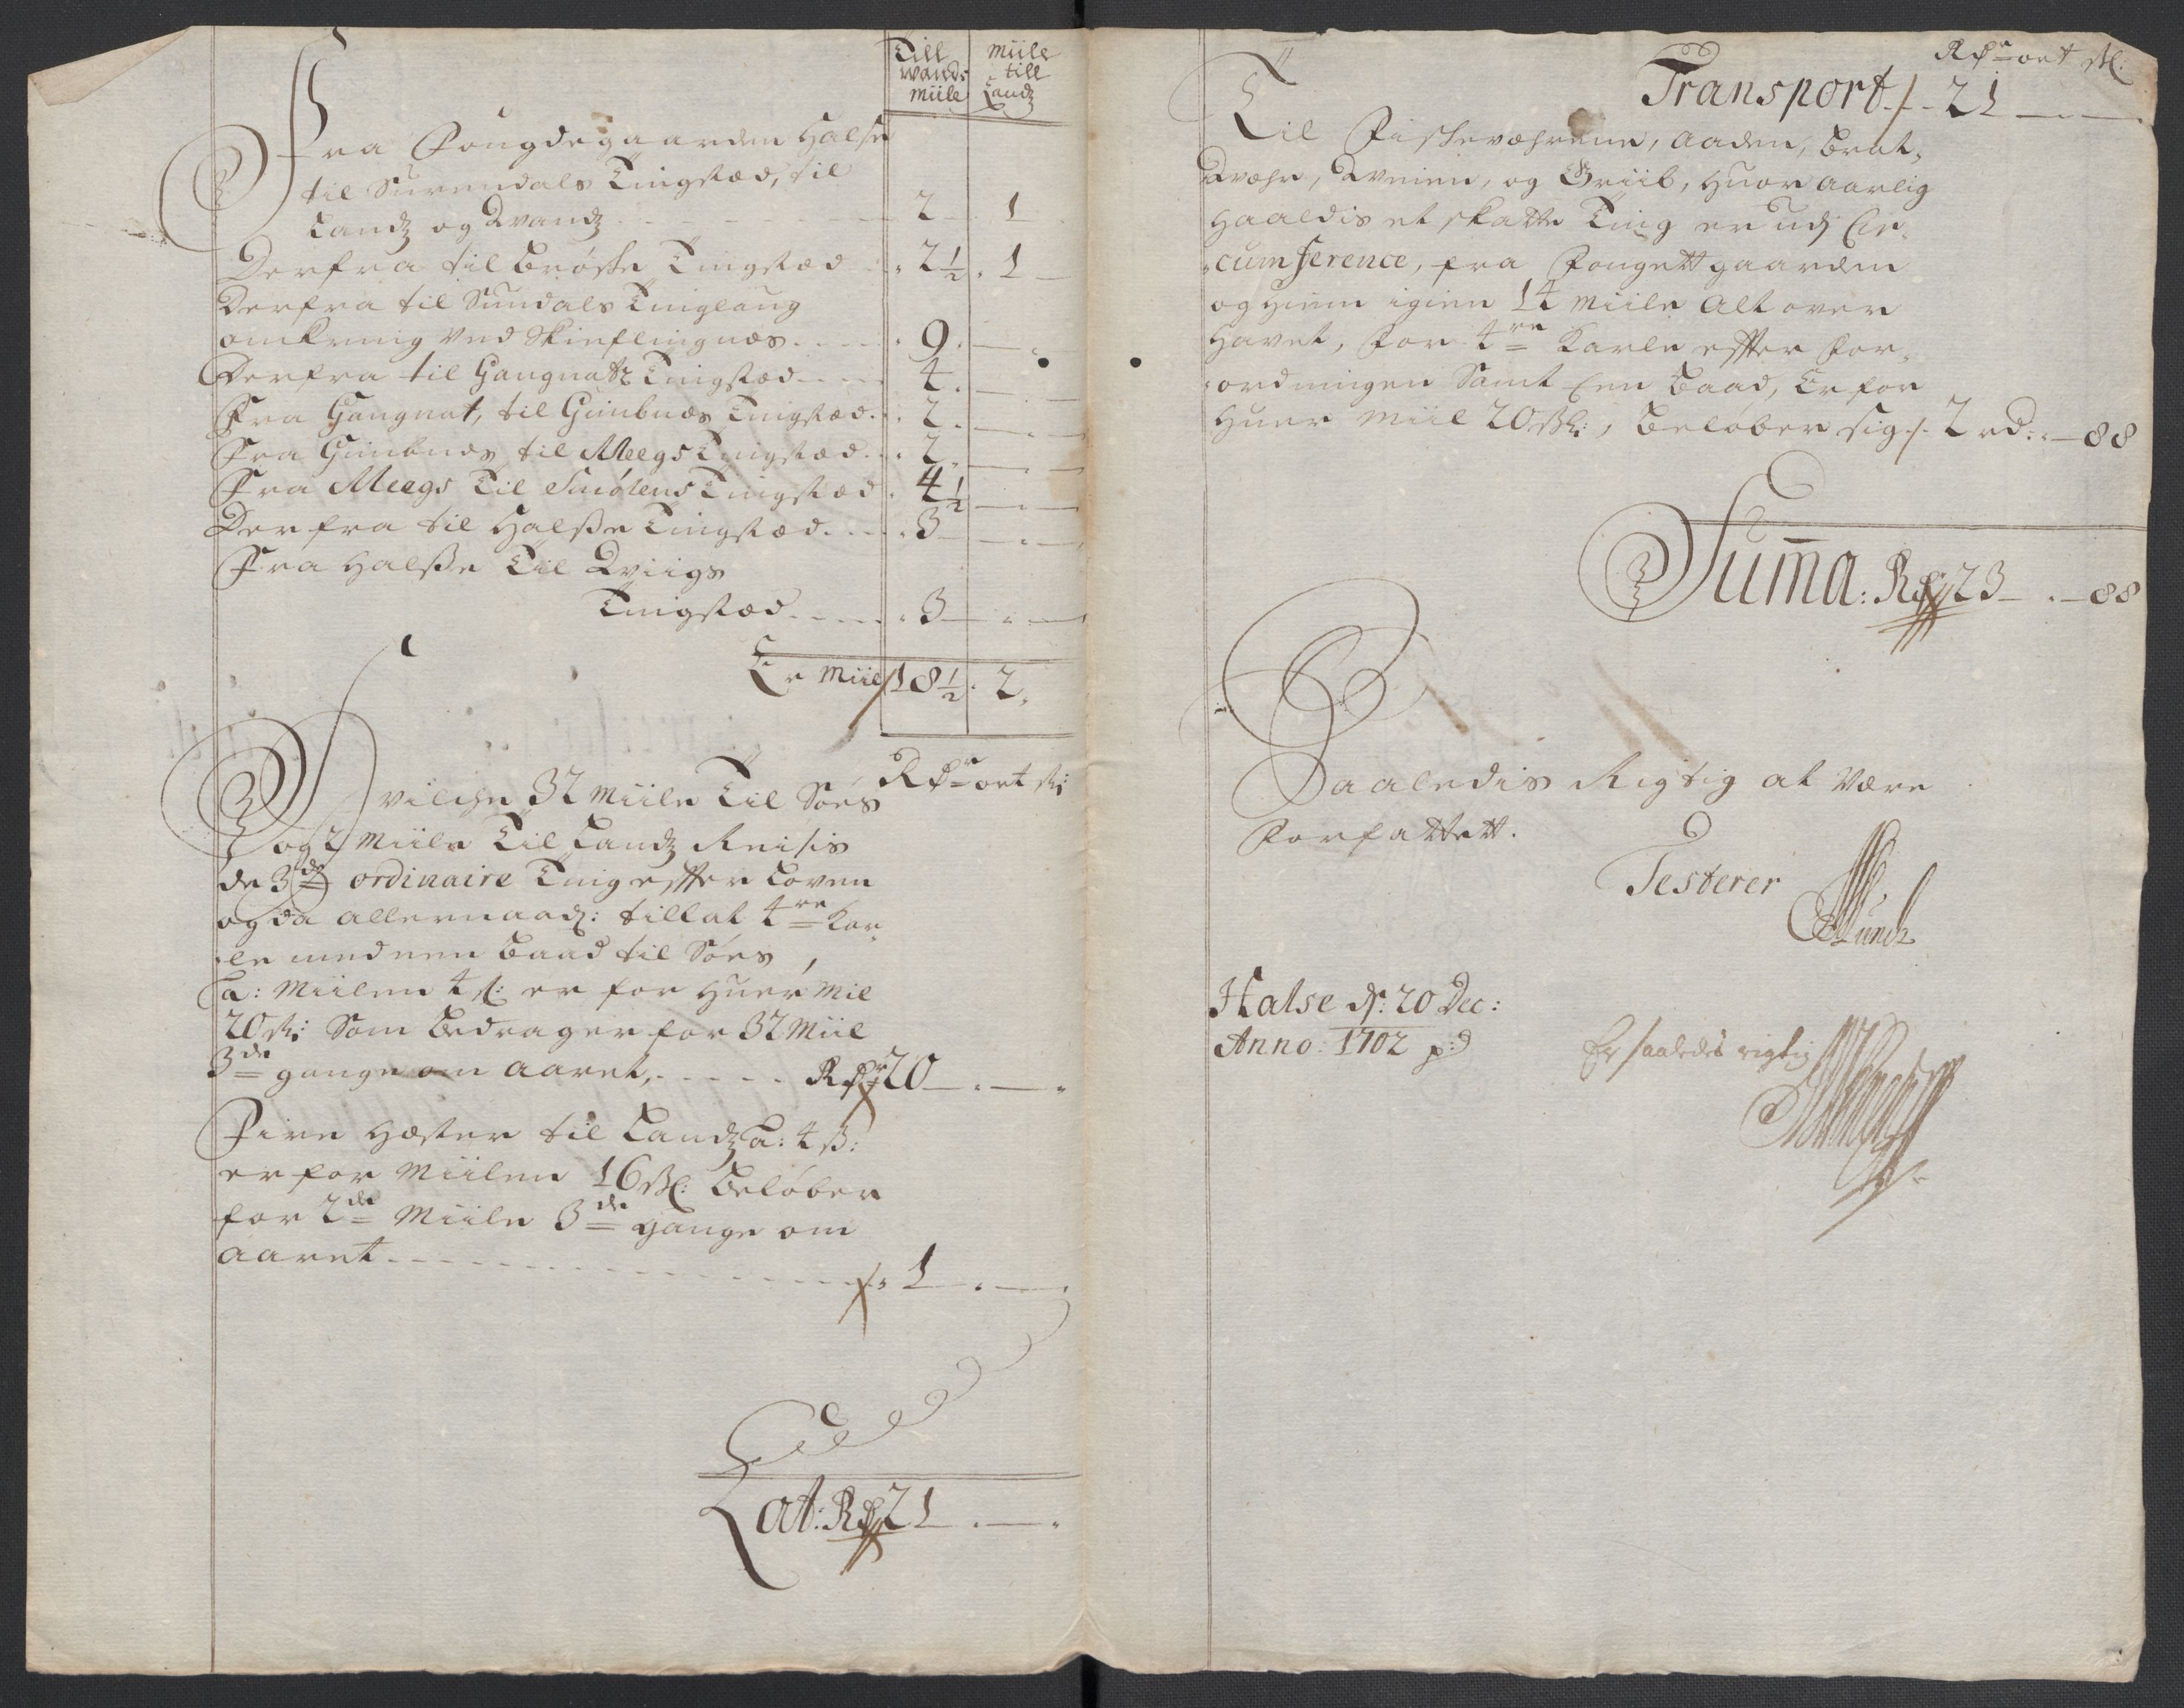 Till wands miile
Miile till Landz
Fra Fougdegaarden Halse
til Surendals Tingstæd, til
Landz og Vandz - 2 - 1
Derfra til Brøske Tingstæd - 2½ - 1
Derfra til Sundals Tinglaug
omkring ved - 9 -
Derfra til Gangnatz Tingstæd - 4 -
Fra Gangnat, til Gimbnæs Tingstæd - 2 -
Fra Gimbnæs til Meegs Tingstæd - 2 -
Fra Meegs Til Smølens Tingstæd - 4½ -
Derfra til Halsße Tingstæd - 3 -
Fra Halsße Til Qviigs
Tingstæd - 3 -
Er Miil 18½ - 2
Rdr ort sk:
Hvilche 32 Miile Til Søes
og 2 Miile Til Landz Reisis
de 3de ordinaire Ting effter Loven
og da allernaad: tillat 4re Kar-
le med een Baad til Søes,
a: Miilen 4 s: er for huer Mil
20 sk: Som bedrager for 32 Miil
3de gange om Aaret, - Rdr 20 -
Fire Hæster til Landz a: 4 s:
er for Miilen 16 sk: beløber
for 2de Miile 3de gange om
aaret - 1 -
Lat: Rd 21 -
Rdr ort sk:
Transport - 21 -
Til Fiskeværene, Aaden, Brat-
vær, Qveien, og Griib, huor aarlig
haaldis et skatte Ting er udj Cir-
cumference, fra Fougettgaarden
og hiem igien 14 Miile alt over
Havet, for 4re Karle effter for-
ordningen Samt Een Baad, Er for
huer Miil 20 sk:, beløber sig - 2 rd: - 88
Suma: Rd 23 - 88
Saaledis Rigtig at være
forfattett.
Testerer
Munch
Halse d: 20 Dec:
Anno: 1702
Er saaledes rigtig